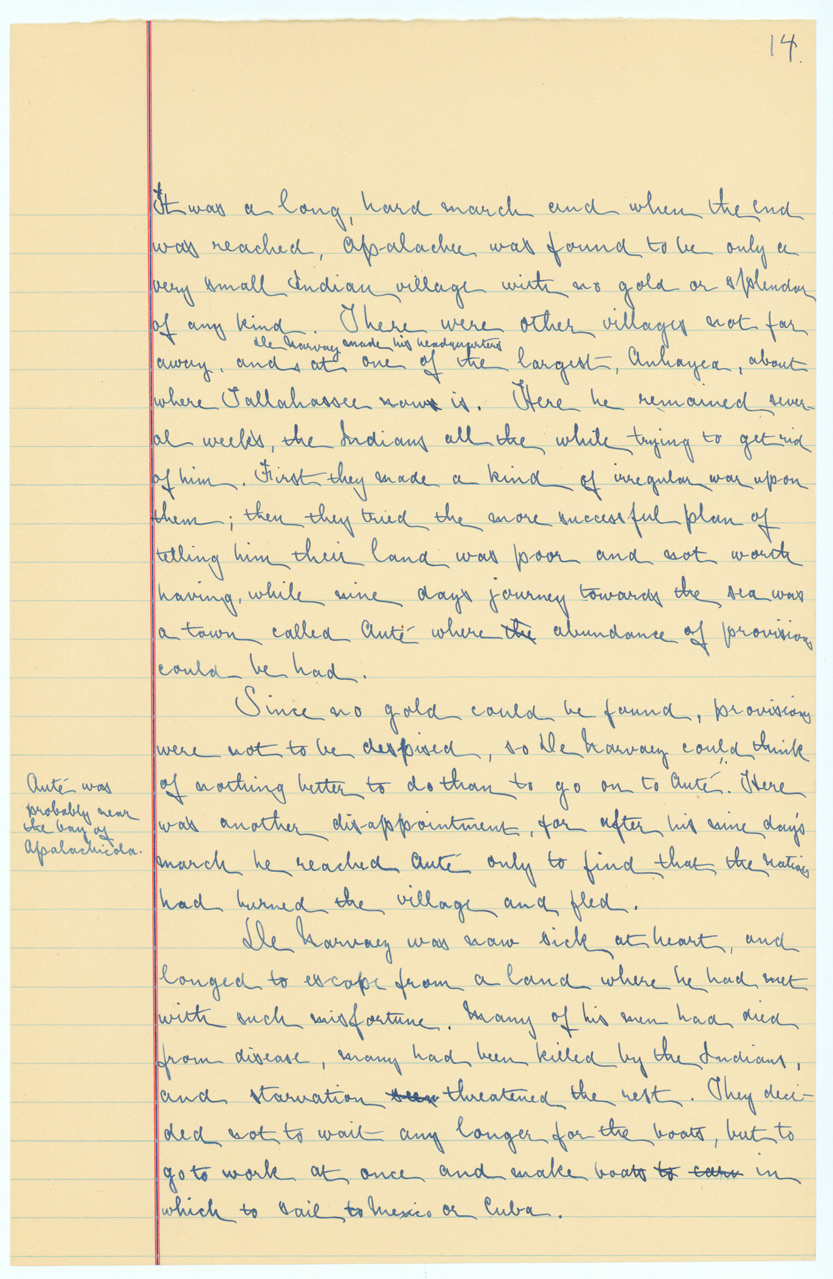 14.
It was a long, hard march and when the end
was reached, Apalachee was found to be only a
very small Indian village with no gold or splendor
of any kind. There were other villages not far
De Narvaez made his headquarters
away, and at one of the largest, Anhayea, about
where Tallahassee now is. Here he remained sever-
al weeks, the Indians all the while trying to get rid
of him. First they made a kind of irregular war upon
them; then they tried the more successful plan of
telling him their land was poor and not worth
having, while nine days journey towards the sea was
a town called Auté where the abundance of provisions
could be had.
Since no gold could be found, provisions
were not to be despised, so De Narvaez could think
of nothing better to do than to go on to Auté. Here
was another disappointment, for after his nine day's
march he reached Auté only to find that the natives
had burned the village and fled.
Auté was
probably near
the bay of
Apalachicola.
De Narvaez was now sick at heart, and
longed to escape from a land where he had met
with such misfortune. Many of his men had died
from disease, many had been killed by the Indians,
and starvation threatened the rest. They deci-
ded not to wait any longer for the boats, but to
go to work at once and make boats to carv in
which to sail to Mexico or Cuba.